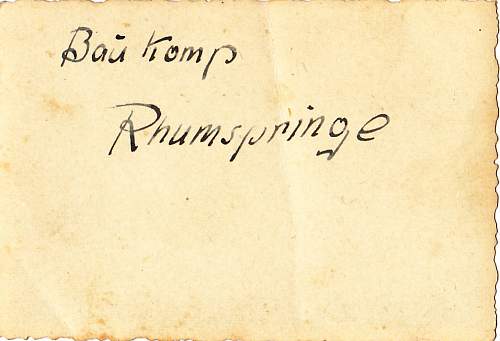 Baŭ Komp
Rhumspringe